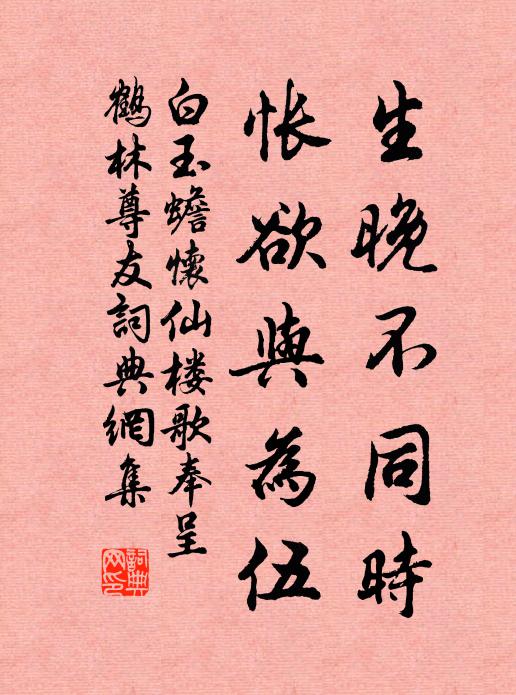 生晚不同時
悵欲與為伍
白玉蟾懷仙楼歌奉呈
鶴林尊友詞典網集
詞典网印